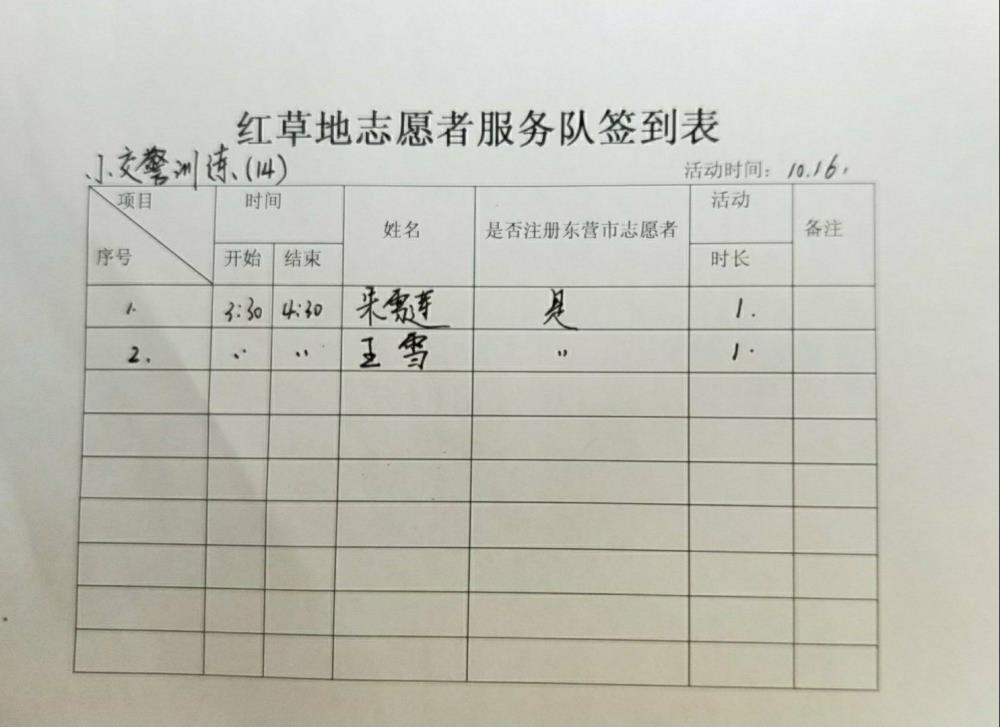 红草地志愿者服务队签到表
小交警训练(14) 活动时间：10.16.
项目 时间 姓名 是否注册东营市志愿者 活动 备注
序号 开始 结束 时长
1. 3:30 4:30 雪莲 是 1.
2. 〃 〃 王雪 〃 1.